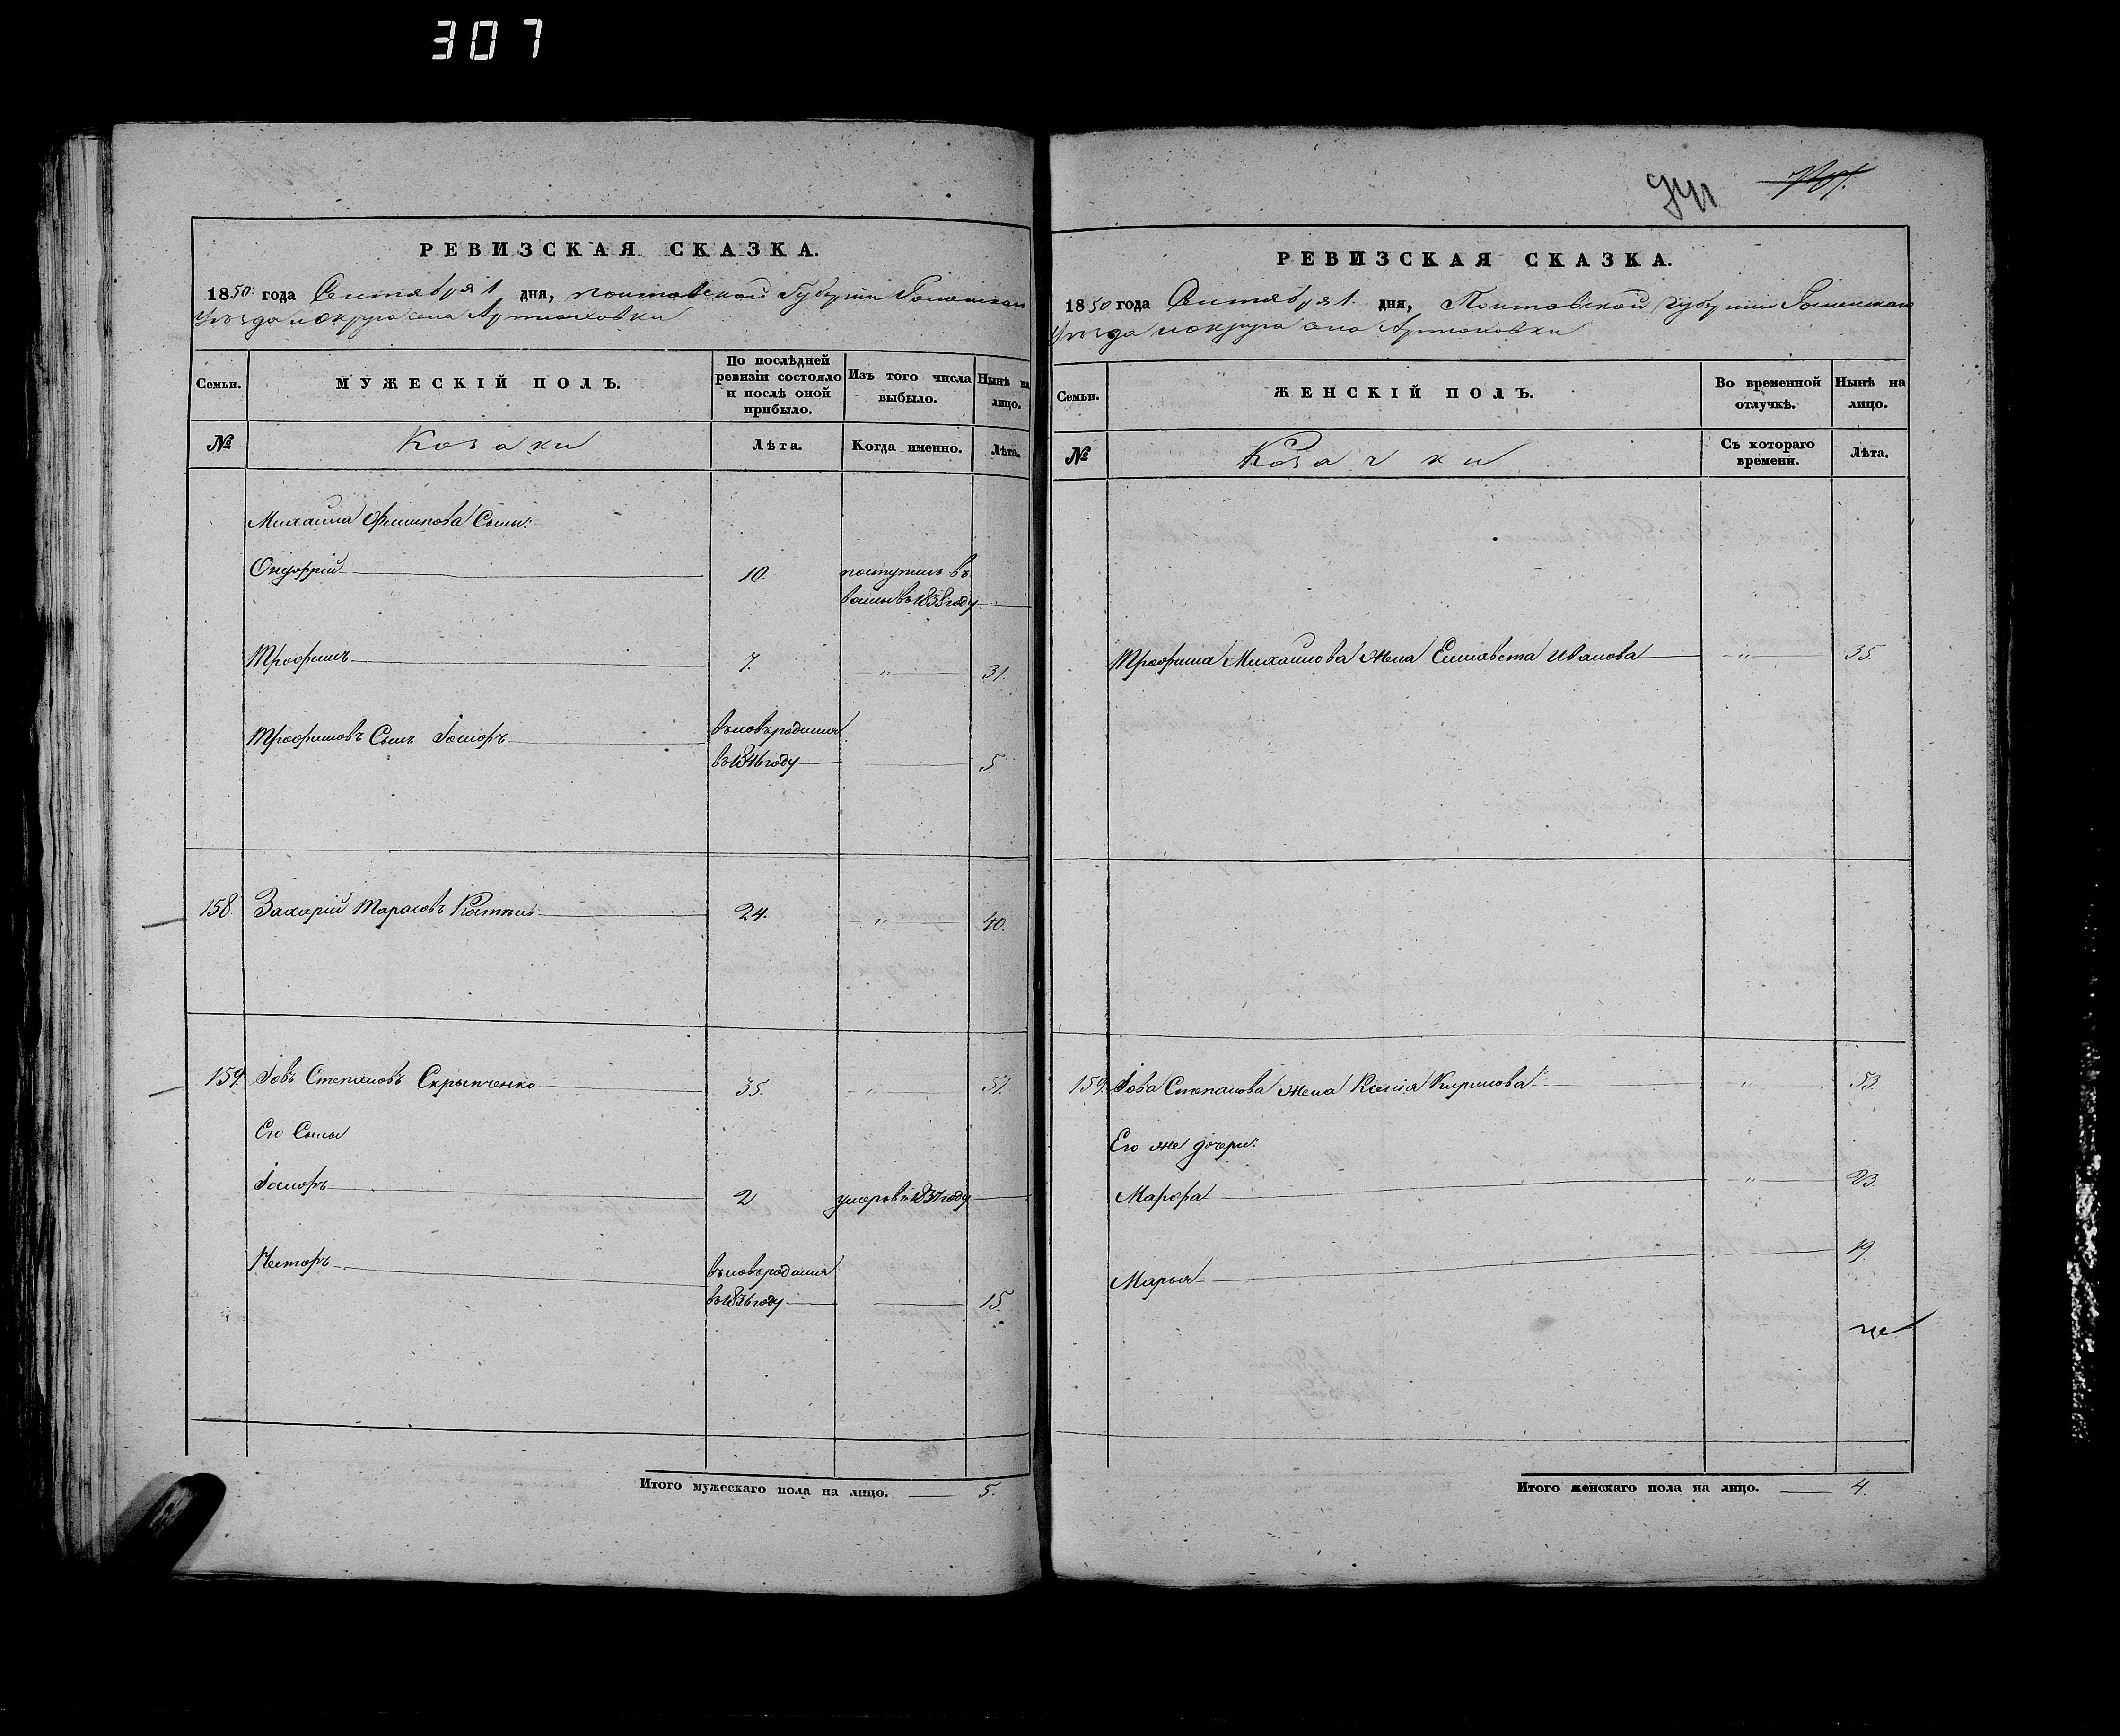 307
РЕВИЗСКАЯ СКАЗКА.
1850 года Сентября 1 дня, Полтавской Губерніи Роменскаго
Уѣзда и округа села Артюховки
Семьи. МУЖЕСКІЙ ПОЛЪ. По послѣдней ревизіи состояло и послѣ оной прибыло. Изъ того числа выбыло. Нынѣ на лицо.
№ Козаки Лѣта. Когда именно. Лѣта.
Михаила Филипова Сыны:
Онуфрій 10. поступилъ въ
1838 году
Трофимъ 7. „ 31.
Трофимовъ Сынъ вновь родился
въ 1846 году 5.
158. Захарій Тарасовъ 24. „ 40.
159. Іовъ Степановъ Скрыпченко 35. „ 51.
Его Сыны
2 умеръ въ 1837 году
Несторъ вновь родился
въ 1836 году 15.
Итого мужескаго пола на лицо. 5.
941
РЕВИЗСКАЯ СКАЗКА.
1850 года Сентября 1. дня, Полтавской Губерніи Роменскаго
Уѣзда и округа села Артюховки
Семьи. ЖЕНСКІЙ ПОЛЪ. Во временной отлучкѣ. Нынѣ на лицо.
№ Козачки Съ котораго времени. Лѣта.
Трофима Михаилова жена Елисавета Иванова „ 35.
159. Іова Степанова жена Ксенія Кирилова „ 53.
Его же дочери:
Марфа „ 23.
Марья 19.
Итого женскаго пола на лицо. 4.